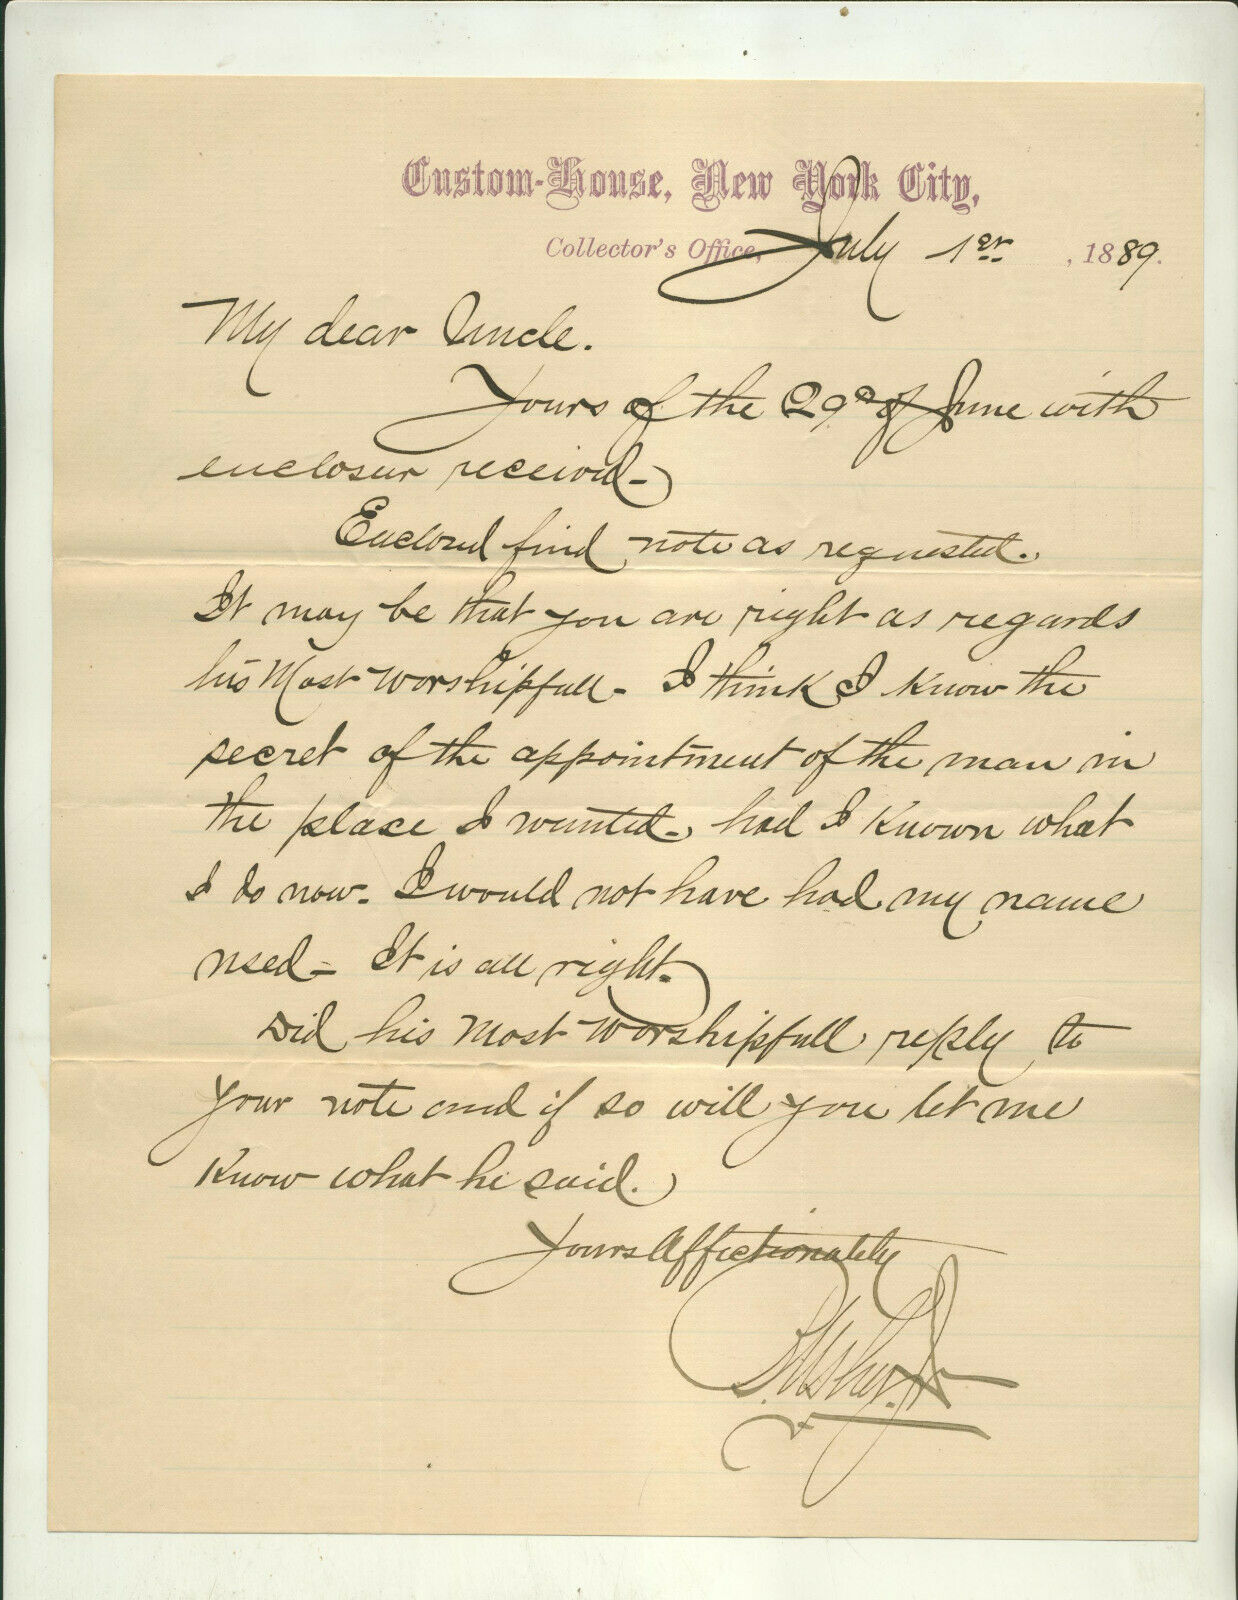 Custom-House, New York City,
Collector's Office, July 1st, 1889.
My dear Uncle.
Yours of the 29th of June with
enclosur received-
Enclosed find note as requested.
It may be that you are right as regards
his Most Worshipfull- I think I know the
secret of the appointment of the man in
the place I wanted- had I known what
I do now- I would not have had my name
used- It is all right-
Did his Most Worshipfull reply to
your note and if so will you let me
know what he said.
Yours Affectionately